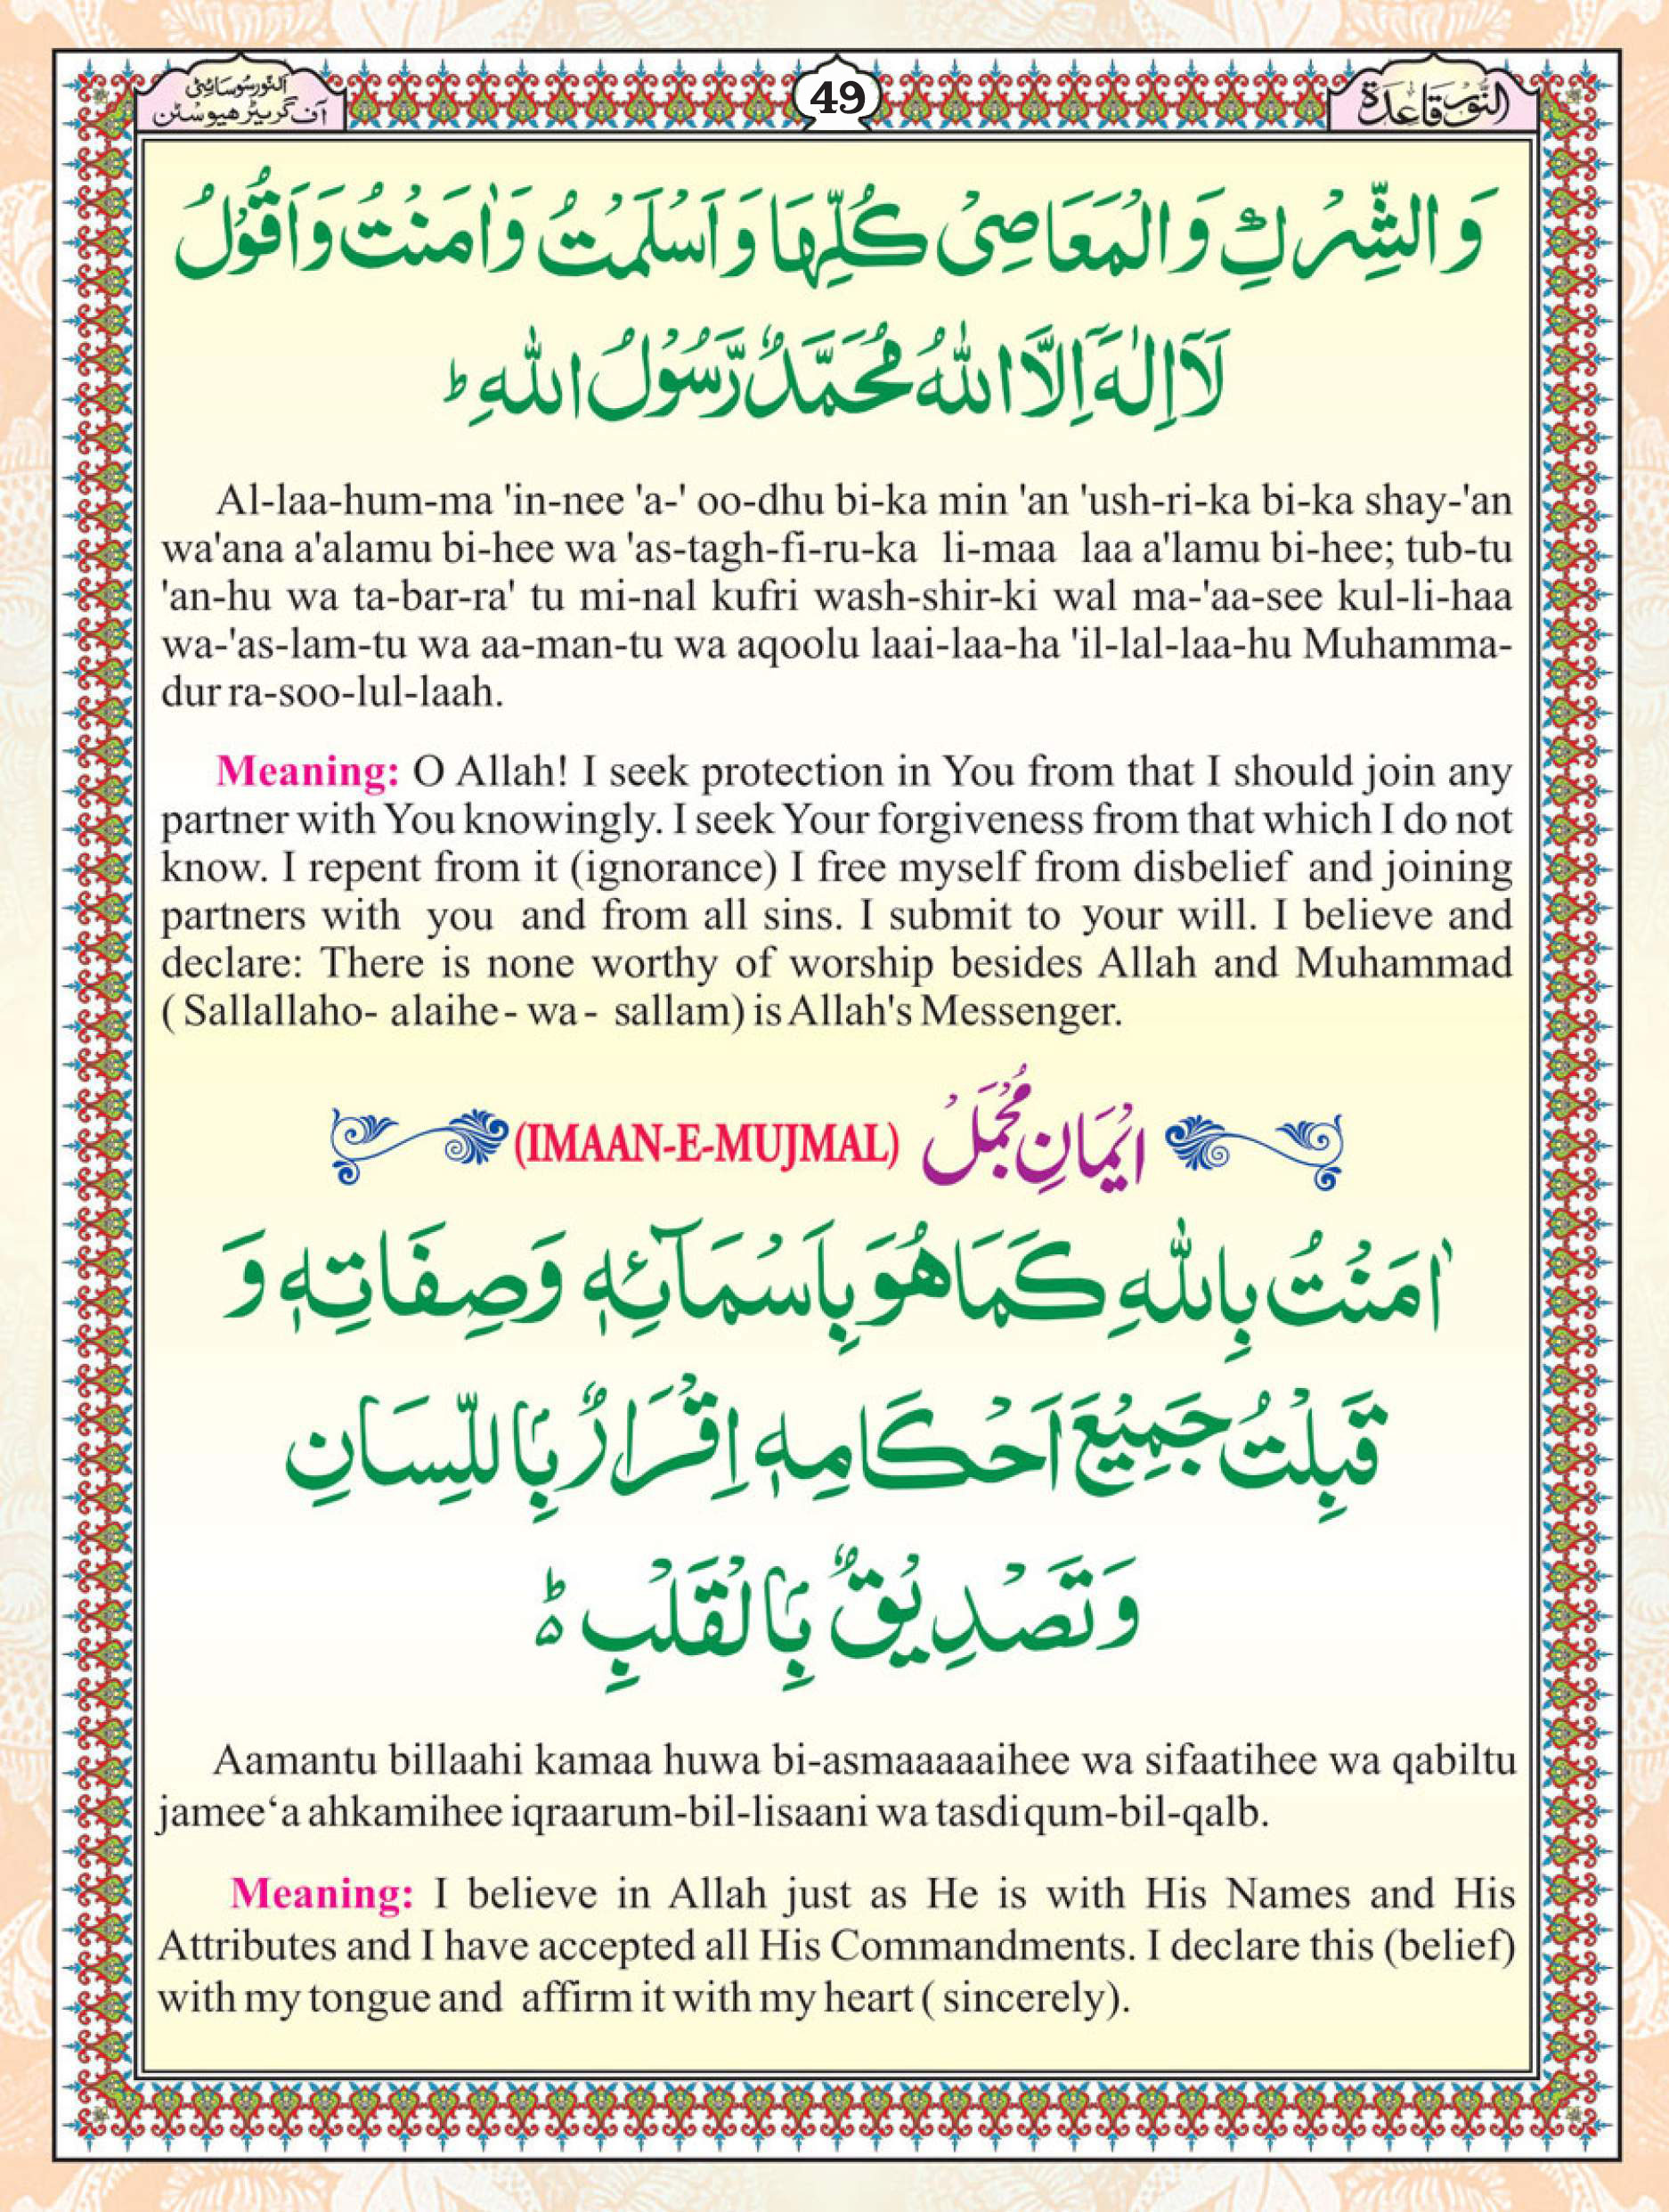 النُّور قَاعِدَة
49
اَلنّور سُوسَائِٹی
آف گریٹر ھیوسٹن
وَالشِّرْكِ وَالْمَعَاصِیْ كُلِّهَا وَاَسْلَمْتُ وَاٰمَنْتُ وَاَقُوْلُ
لَآ اِلٰهَ اِلَّا اللّٰهُ مُحَمَّدٌ رَّسُوْلُ اللّٰهِ ؕ
Al-laa-hum-ma 'in-nee 'a-' oo-dhu bi-ka min 'an 'ush-ri-ka bi-ka shay-'an
wa'ana a'alamu bi-hee wa 'as-tagh-fi-ru-ka li-maa laa a'lamu bi-hee; tub-tu
'an-hu wa ta-bar-ra' tu mi-nal kufri wash-shir-ki wal ma-'aa-see kul-li-haa
wa-'as-lam-tu wa aa-man-tu wa aqoolu laai-laa-ha 'il-lal-laa-hu Muhamma-
dur ra-soo-lul-laah.
Meaning: O Allah! I seek protection in You from that I should join any
partner with You knowingly. I seek Your forgiveness from that which I do not
know. I repent from it (ignorance) I free myself from disbelief and joining
partners with you and from all sins. I submit to your will. I believe and
declare: There is none worthy of worship besides Allah and Muhammad
( Sallallaho- alaihe - wa - sallam) is Allah's Messenger.
(IMAAN-E-MUJMAL) اِيْمَانِ مُجْمَلْ
اٰمَنْتُ بِاللّٰهِ كَمَا هُوَ بِاَسْمَآئِهٖ وَصِفَاتِهٖ وَ
قَبِلْتُ جَمِيْعَ اَحْكَامِهٖ اِقْرَارٌۢ بِاللِّسَانِ
وَتَصْدِيْقٌۢ بِالْقَلْبِ ؕ۵
Aamantu billaahi kamaa huwa bi-asmaaaaaihee wa sifaatihee wa qabiltu
jamee‘a ahkamihee iqraarum-bil-lisaani wa tasdiqum-bil-qalb.
Meaning: I believe in Allah just as He is with His Names and His
Attributes and I have accepted all His Commandments. I declare this (belief)
with my tongue and affirm it with my heart ( sincerely).